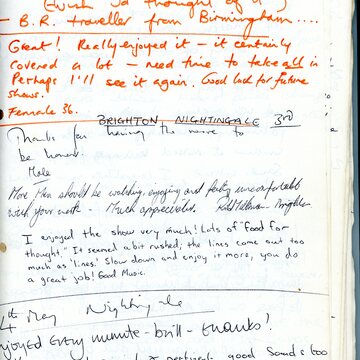 (wish I'd thought of it)
- B.R. traveller from Birmingham....
Great! Really enjoyed it - it certainly
covered a lot - need time to take all in
Perhaps I'll see it again. Good luck for future
shows.
Female 36.
BRIGHTON NIGHTINGALE 3rd
Thanks for having the nerve to
be honest.
Male
More Men should be watching, enjoying and feeling uncomfortable
with your work - Much appreciated. Brighton
I enjoyed the show very much! Lots of "food for
thought". It seemed a bit rushed; the lines came out too
much as 'lines'. Slow down and enjoy it more, you do
a great job! Good Music.
4th May Nightingale
enjoyed EVERY minute - brill - thanks!
good Sounds too